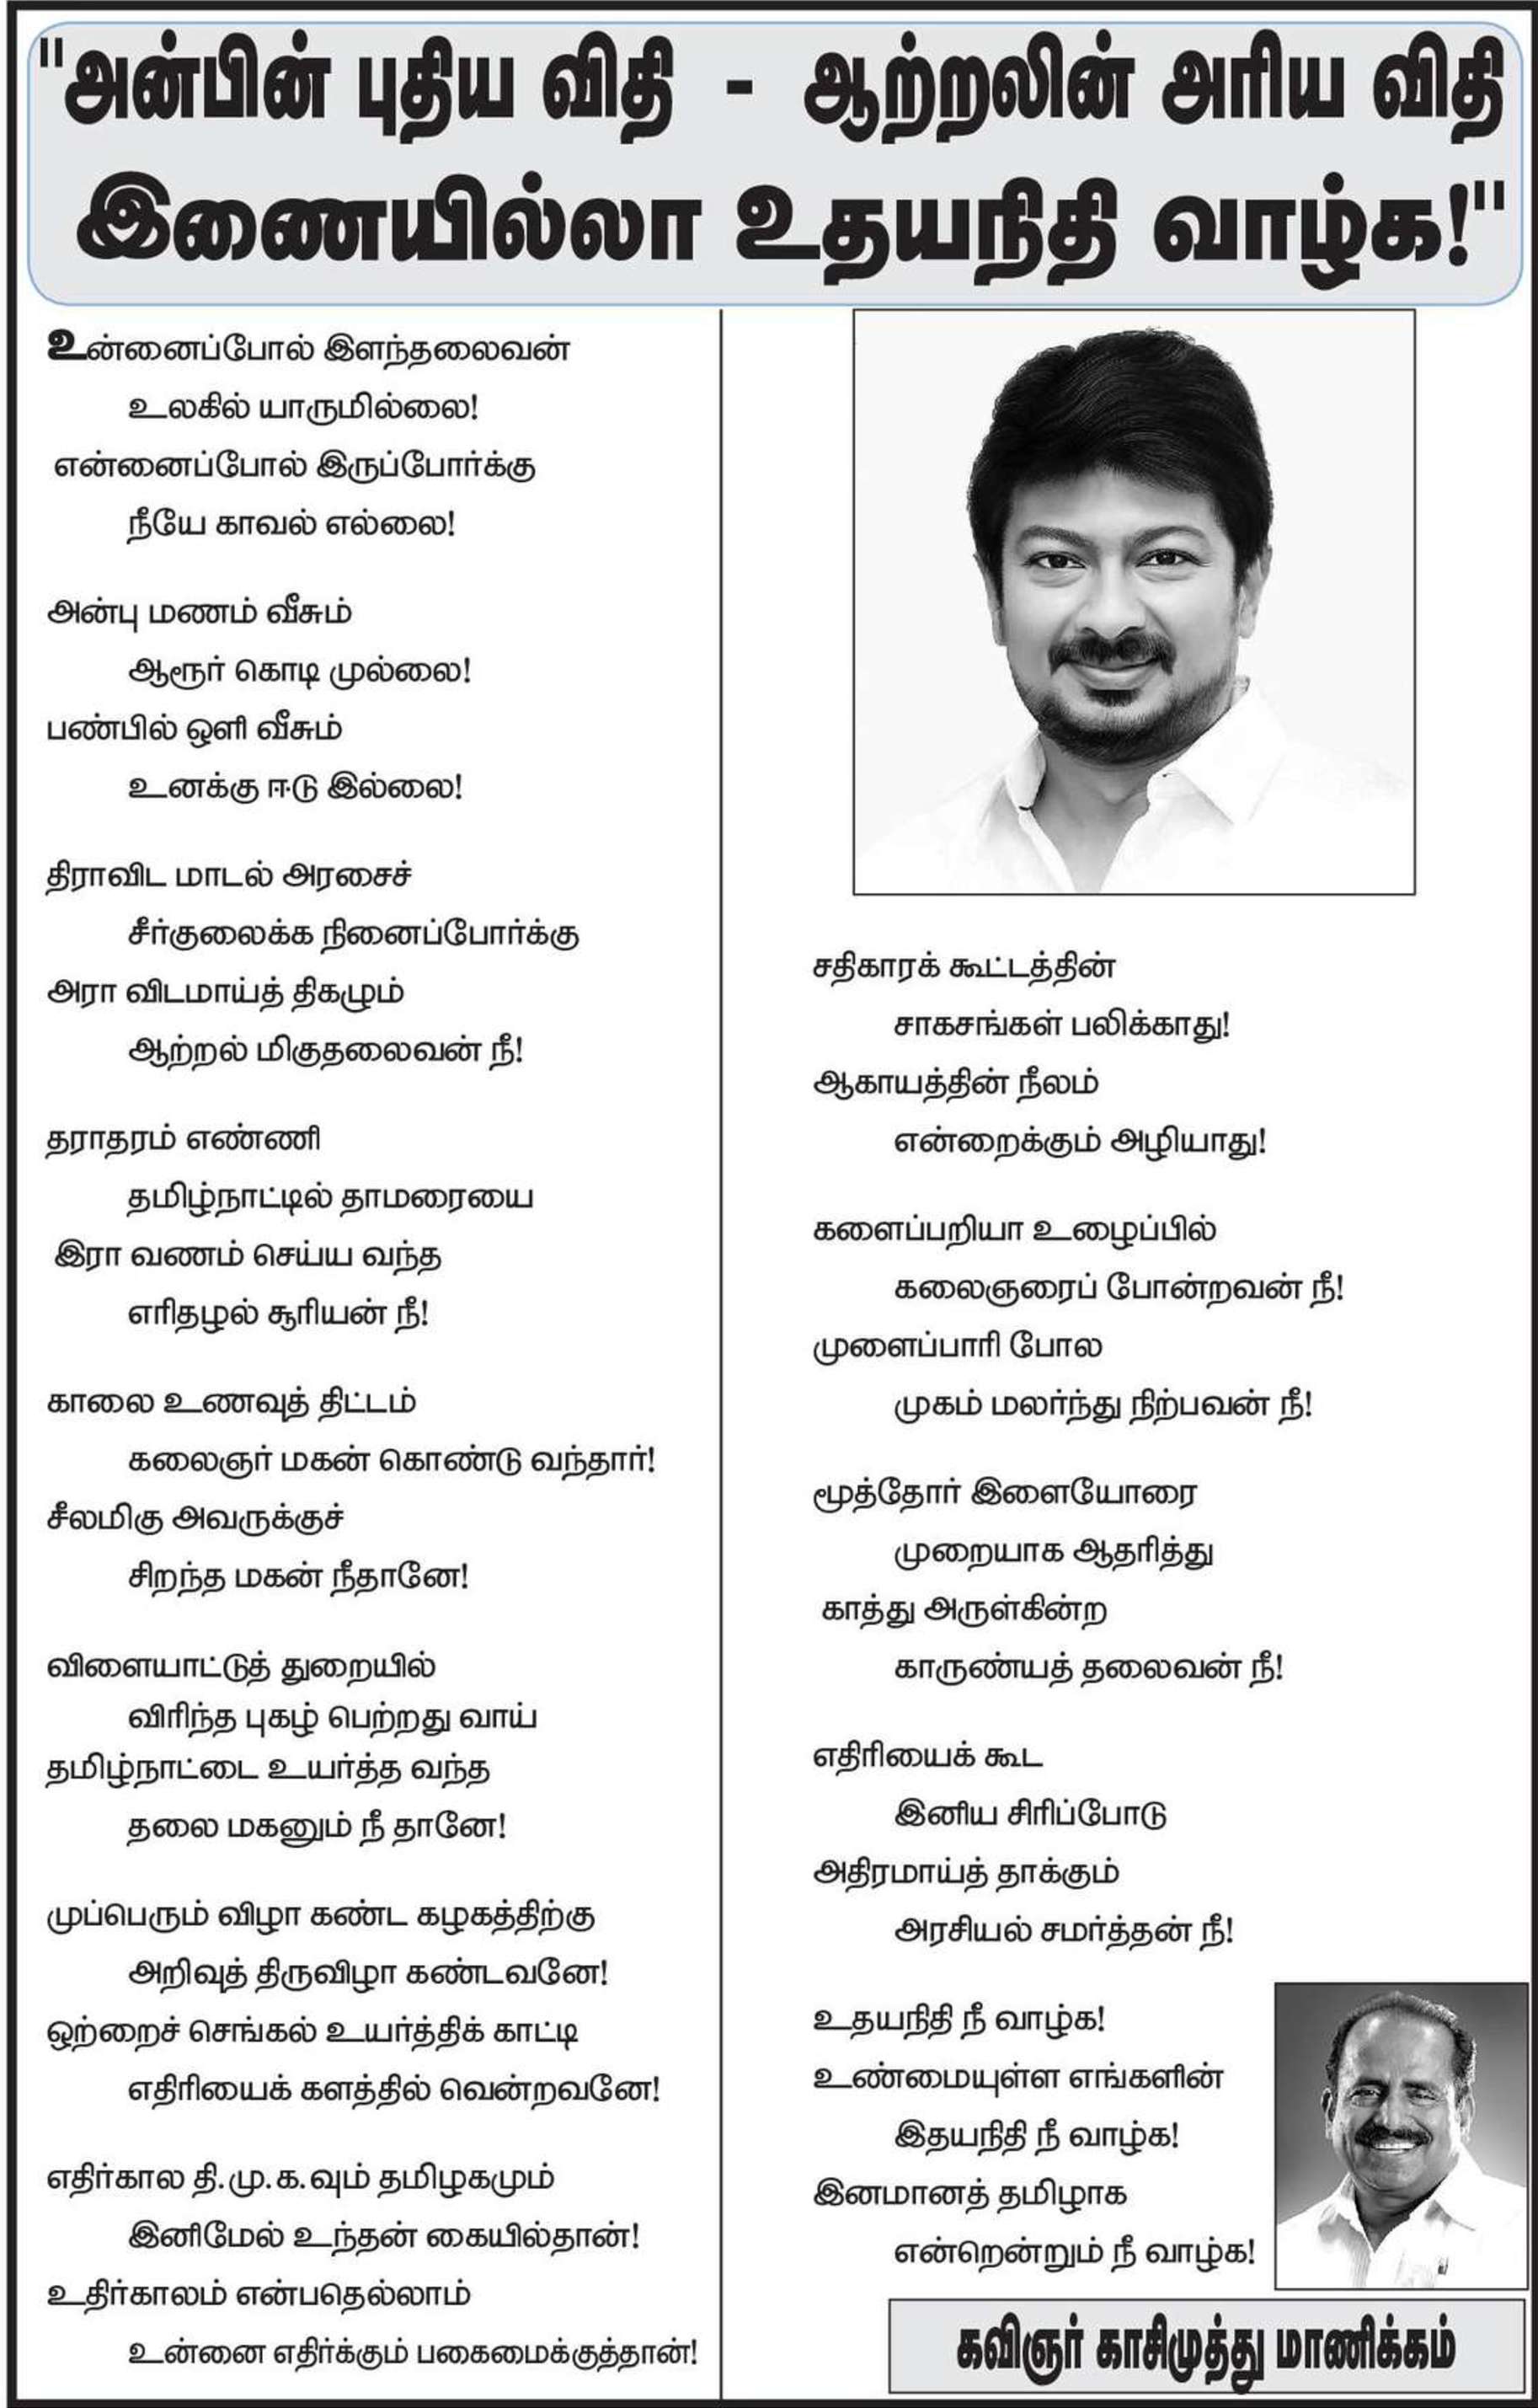 "அன்பின் புதிய விதி - ஆற்றலின் அரிய விதி
இணையில்லா உதயநிதி வாழ்க!"
உன்னைப்போல் இளந்தலைவன்
உலகில் யாருமில்லை!
என்னைப்போல் இருப்போர்க்கு
நீயே காவல் எல்லை!
அன்பு மணம் வீசும்
ஆரூர் கொடி முல்லை!
பண்பில் ஒளி வீசும்
உனக்கு ஈடு இல்லை!
திராவிட மாடல் அரசைச்
சீர்குலைக்க நினைப்போர்க்கு
அரா விடமாய்த் திகழும்
ஆற்றல் மிகுதலைவன் நீ!
தராதரம் எண்ணி
தமிழ்நாட்டில் தாமரையை
இரா வணம் செய்ய வந்த
எரிதழல் சூரியன் நீ!
காலை உணவுத் திட்டம்
கலைஞர் மகன் கொண்டு வந்தார்!
சீலமிகு அவருக்குச்
சிறந்த மகன் நீதானே!
விளையாட்டுத் துறையில்
விரிந்த புகழ் பெற்றது வாய்
தமிழ்நாட்டை உயர்த்த வந்த
தலை மகனும் நீ தானே!
முப்பெரும் விழா கண்ட கழகத்திற்கு
அறிவுத் திருவிழா கண்டவனே!
ஒற்றைச் செங்கல் உயர்த்திக் காட்டி
எதிரியைக் களத்தில் வென்றவனே!
எதிர்கால தி.மு.க.வும் தமிழகமும்
இனிமேல் உந்தன் கையில்தான்!
உதிர்காலம் என்பதெல்லாம்
உன்னை எதிர்க்கும் பகைமைக்குத்தான்!
சதிகாரக் கூட்டத்தின்
சாகசங்கள் பலிக்காது!
ஆகாயத்தின் நீலம்
என்றைக்கும் அழியாது!
களைப்பறியா உழைப்பில்
கலைஞரைப் போன்றவன் நீ!
முளைப்பாரி போல
முகம் மலர்ந்து நிற்பவன் நீ!
மூத்தோர் இளையோரை
முறையாக ஆதரித்து
காத்து அருள்கின்ற
காருண்யத் தலைவன் நீ!
எதிரியைக் கூட
இனிய சிரிப்போடு
அதிரமாய்த் தாக்கும்
அரசியல் சமர்த்தன் நீ!
உதயநிதி நீ வாழ்க!
உண்மையுள்ள எங்களின்
இதயநிதி நீ வாழ்க!
இனமானத் தமிழாக
என்றென்றும் நீ வாழ்க!
கவிஞர் காசிமுத்து மாணிக்கம்